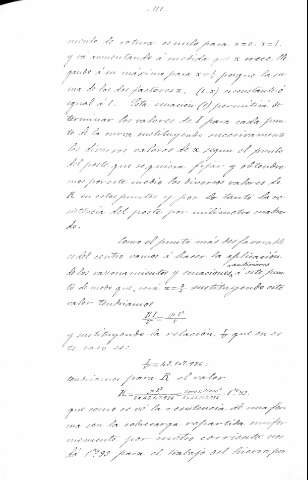 111
mento de rotura es nulo para x=0, x=1.
y va aumentando á medida que x crece, lle
gando á su máximo para x=½ porque la su
ma de los dos factores x, (1-x) es constante é
igual á 1. Esta ecuación (1) permitirá de
terminar los valores de l para cada pun
to de la curva sustituyendo sucesivamente
los diversos valores de x segun el punto
del poste que se quiera fijar y obtendre
mos por este medio los diversos valores de
R en estos puntos y por lo tanto la re
sistencia del poste por milímetro cuadra
do.
Como el punto mas desfavorable
es del centro vamos á hacer la aplicación
de los razonamientos y ecuaciones á este pun
to de modo que, será x= sustituyendo este
valor tendríamos
y sustituyendo la relación que en es
te caso es:
tendríamos para R el valor
que como se vé la resistencia de una for
ma con la sobrecarga repartida unifor
memente por metro corriente nos
dá para el trabajo del hierro, por